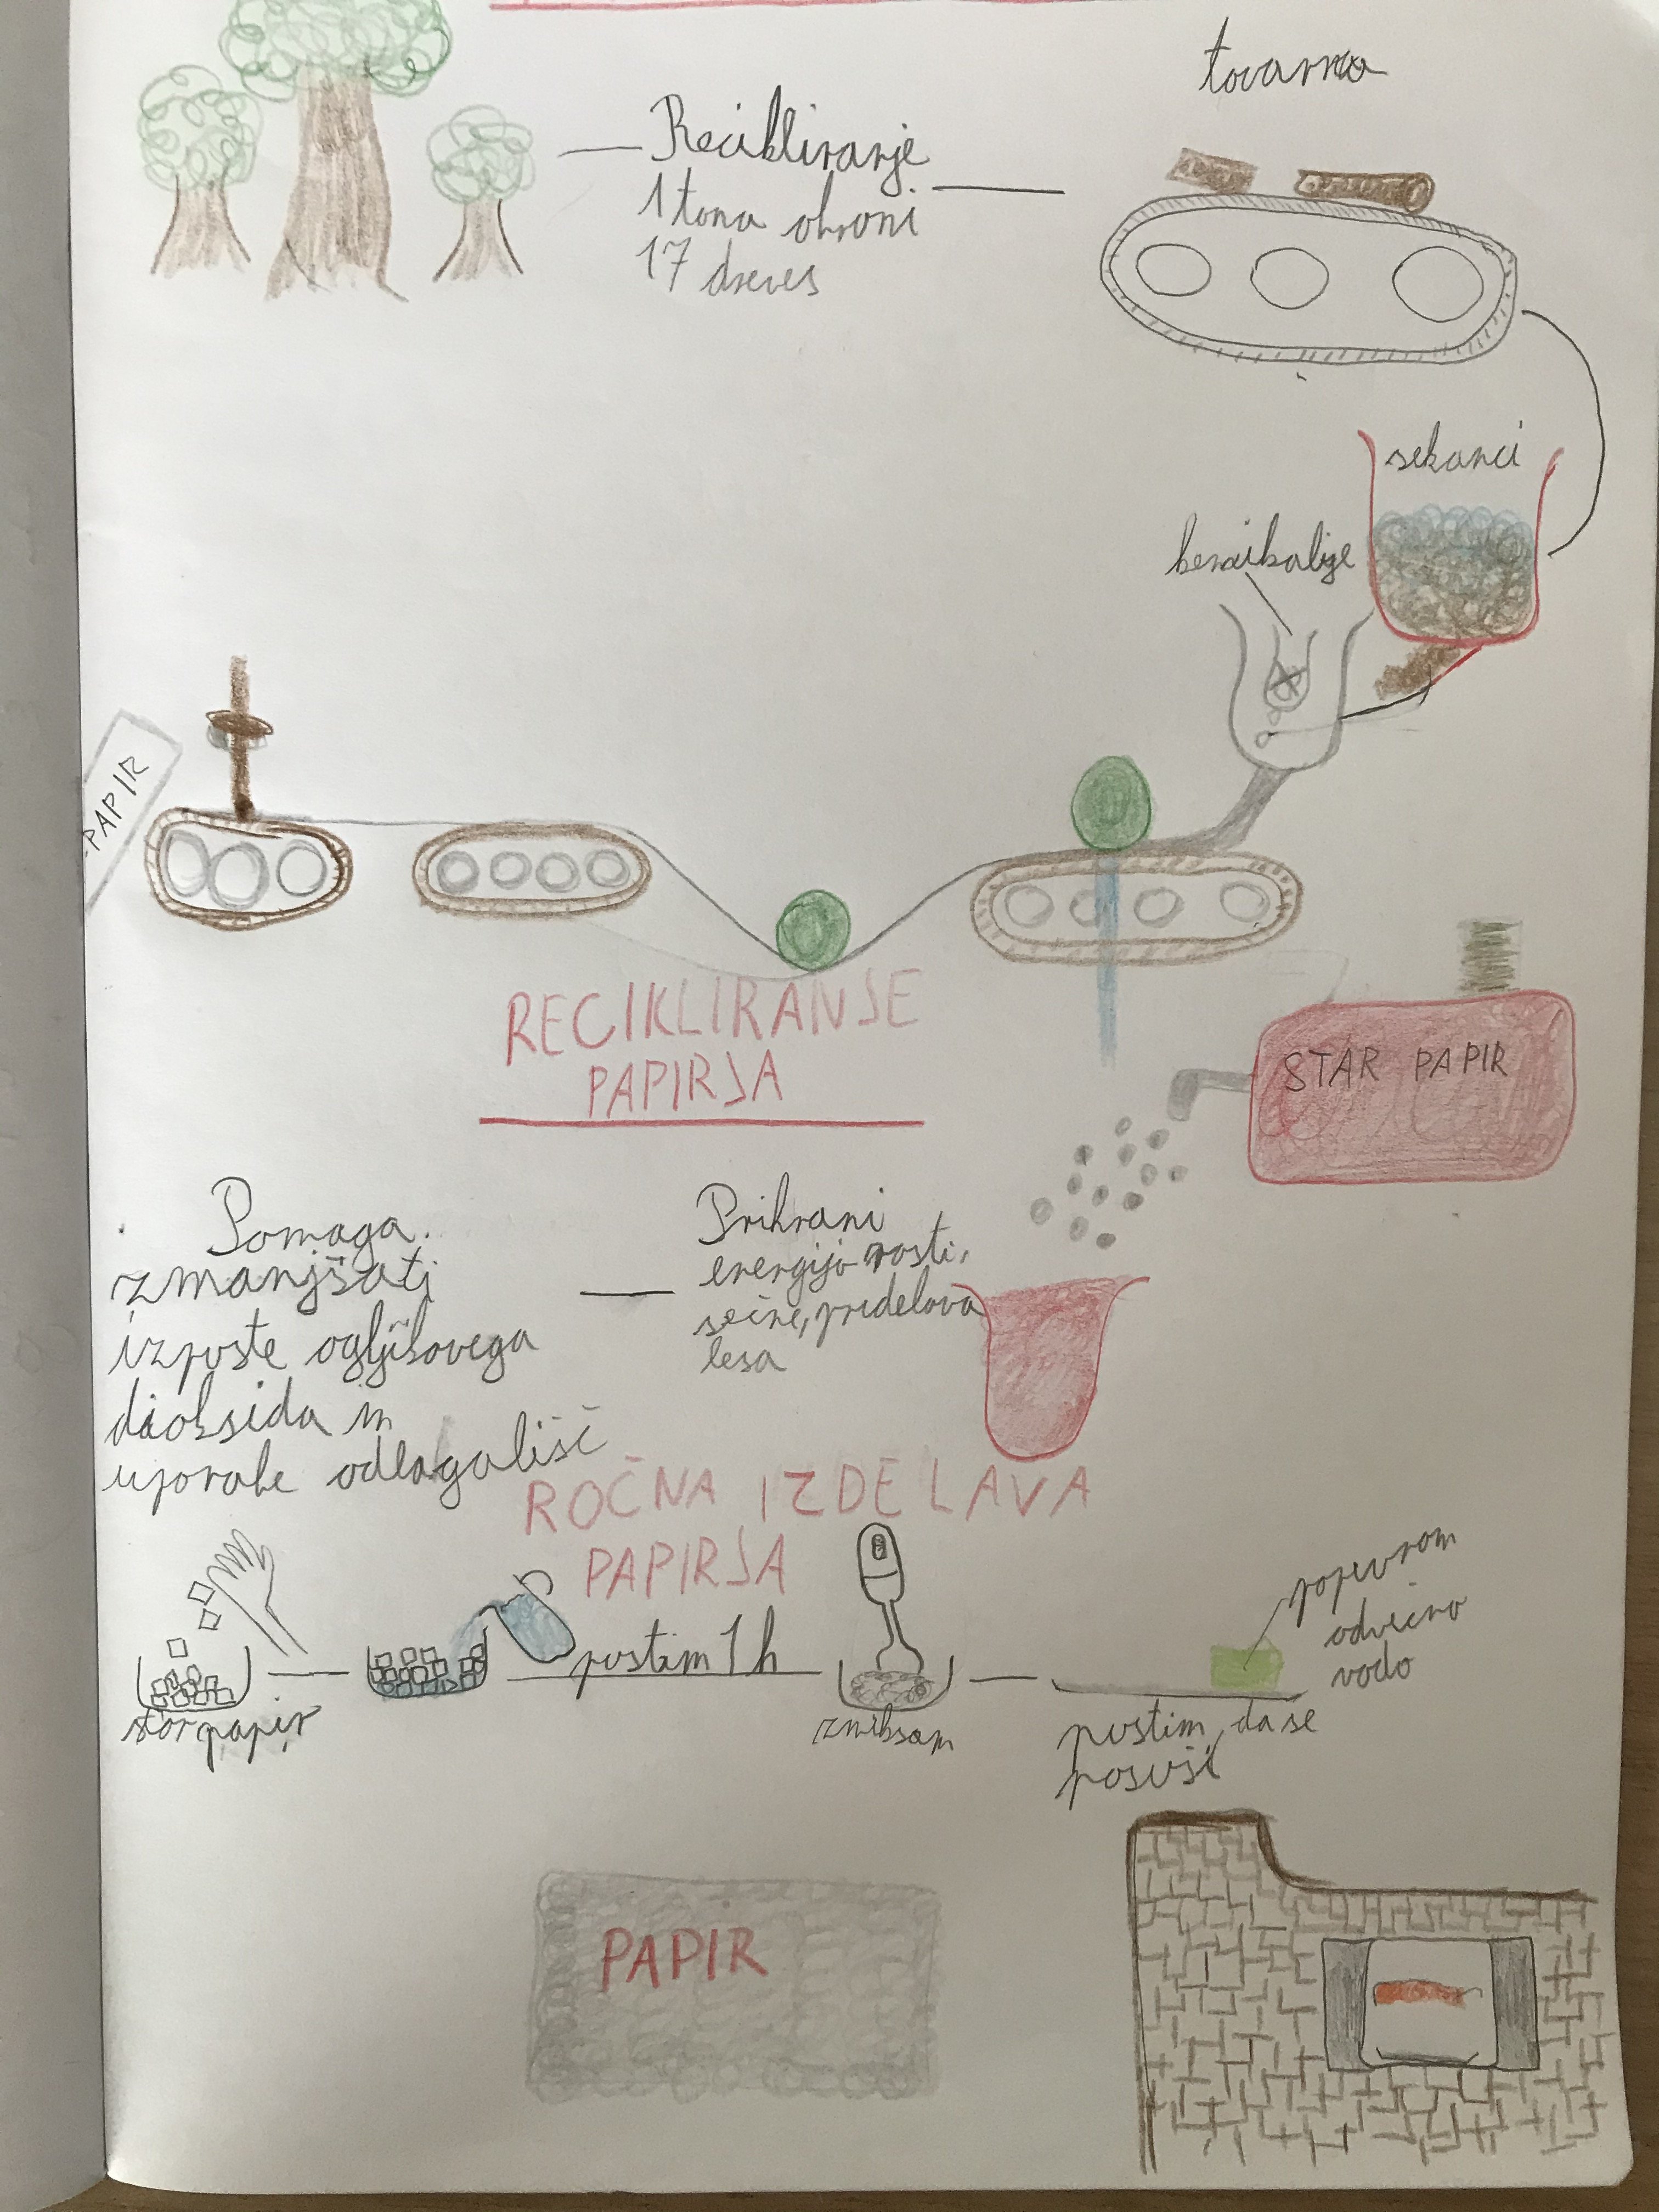 tovarna
Recikliranje
1 tona ohrani
17 dreves
sekanci
kemikalije
PAPIR
RECIKLIRANJE
PAPIRJA
STAR PAPIR
Pomaga
zmanjšati
izpuste ogljikovega
dioksida in
uporabe odlagališč
Prihrani
energijo rasti,
sečne, pridelava
lesa
ROČNA IZDELAVA
PAPIRJA
star papir
pustim 1 h
zmiksam
popivnam
odvečno
vodo
pustim, da se
posuši
PAPIR